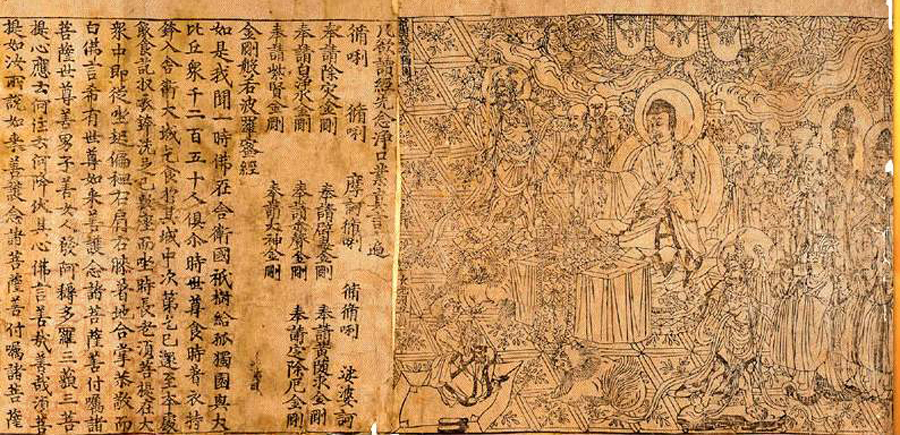 凡欲讀經先念淨口業真言一遍
脩唎 脩唎 摩訶脩唎 脩脩唎 娑婆訶
奉請除灾金剛 奉請辟毒金剛 奉請黃隨求金剛
奉請白淨水金剛 奉請赤聲金剛 奉請定除厄金剛
奉請紫賢金剛 奉請大神金剛
金剛般若波羅蜜經
如是我聞一時佛在舍衛國祇樹給孤獨園與大
比丘衆千二百五十人俱尒時世尊食時著衣持
鉢入舍衛大城乞食於其城中次第乞已還至本處
飯食訖收衣鉢洗足已敷座而坐時長老須菩提在大
衆中即從坐起偏袒右肩右膝著地合掌恭敬而
白佛言希有世尊如来善護念諸菩薩善付囑諸
菩薩世尊善男子善女人發阿耨多羅三藐三菩
提心應云何住云何降伏其心佛言善哉善哉須菩
提如汝所說如来善護念諸菩薩善付囑諸菩薩